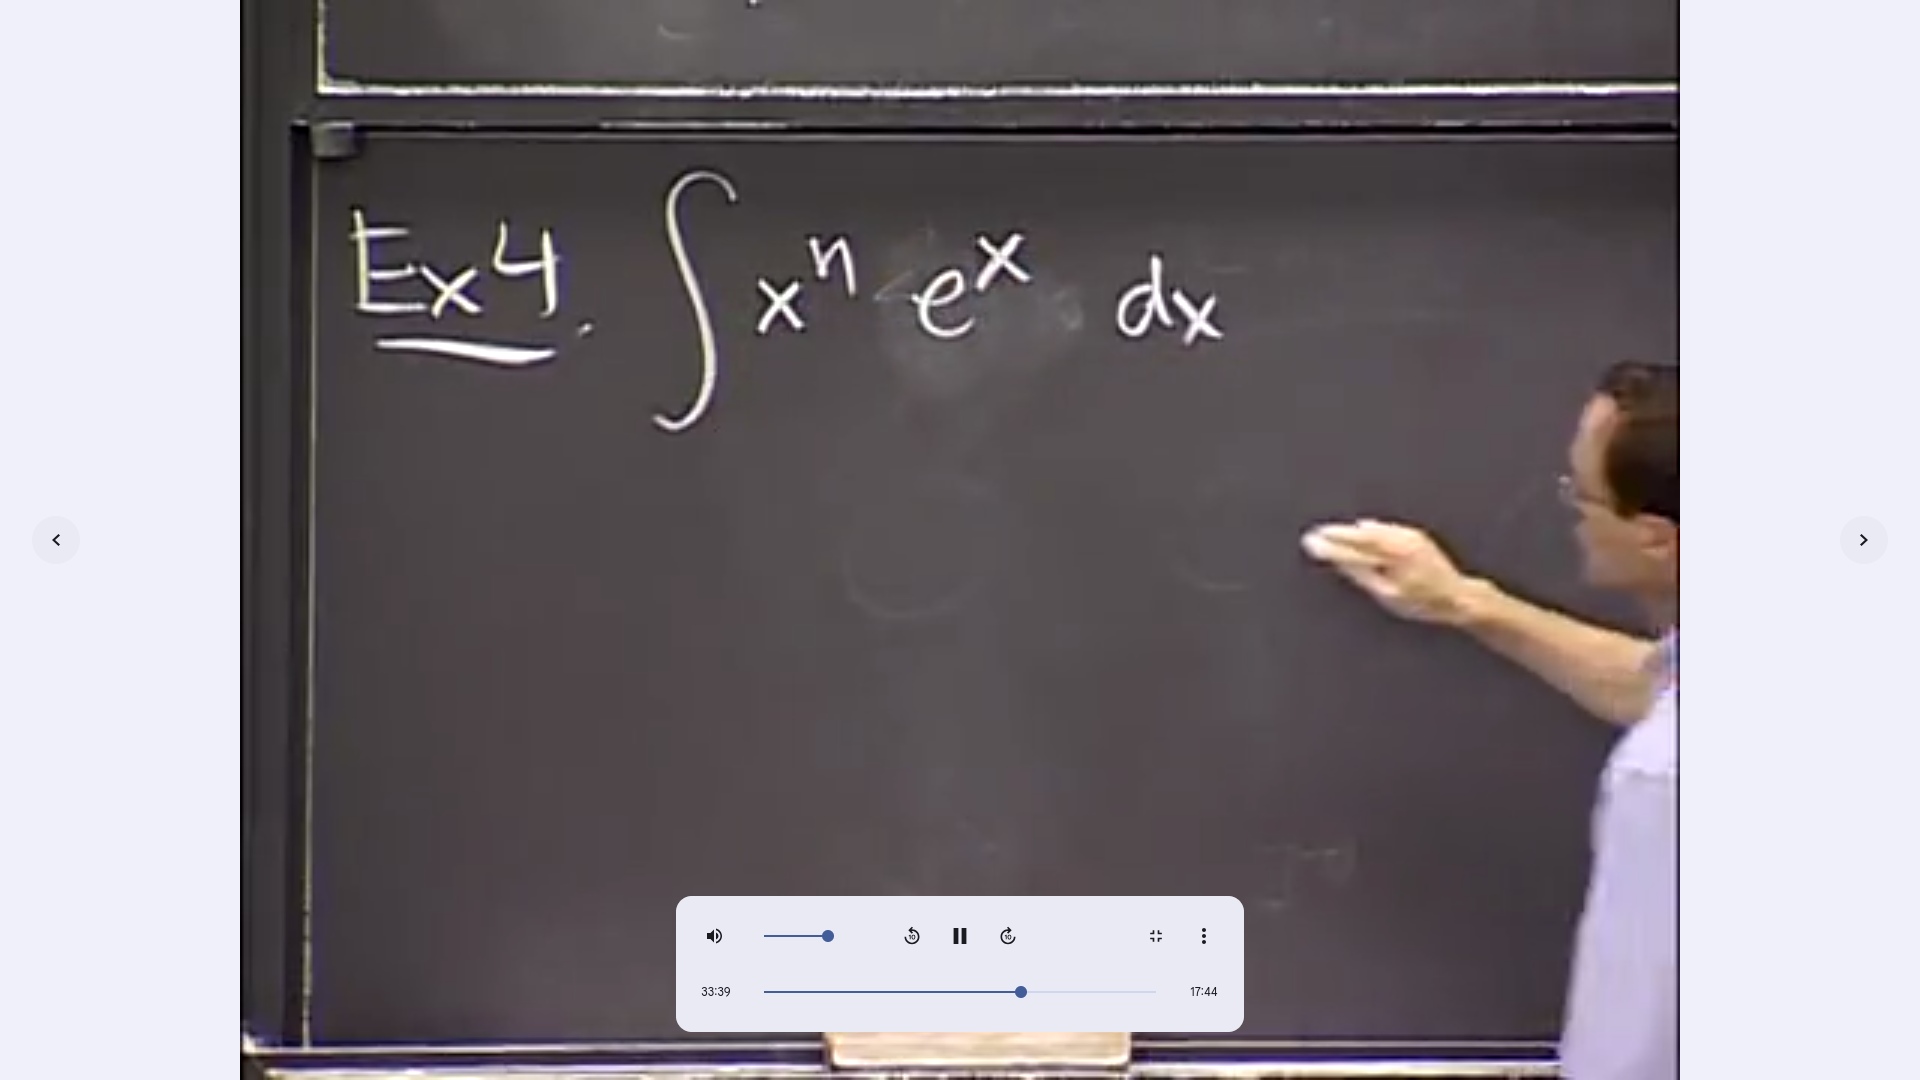 Ex 4. ∫ xⁿ eˣ dx
10 10
33:39 17:44